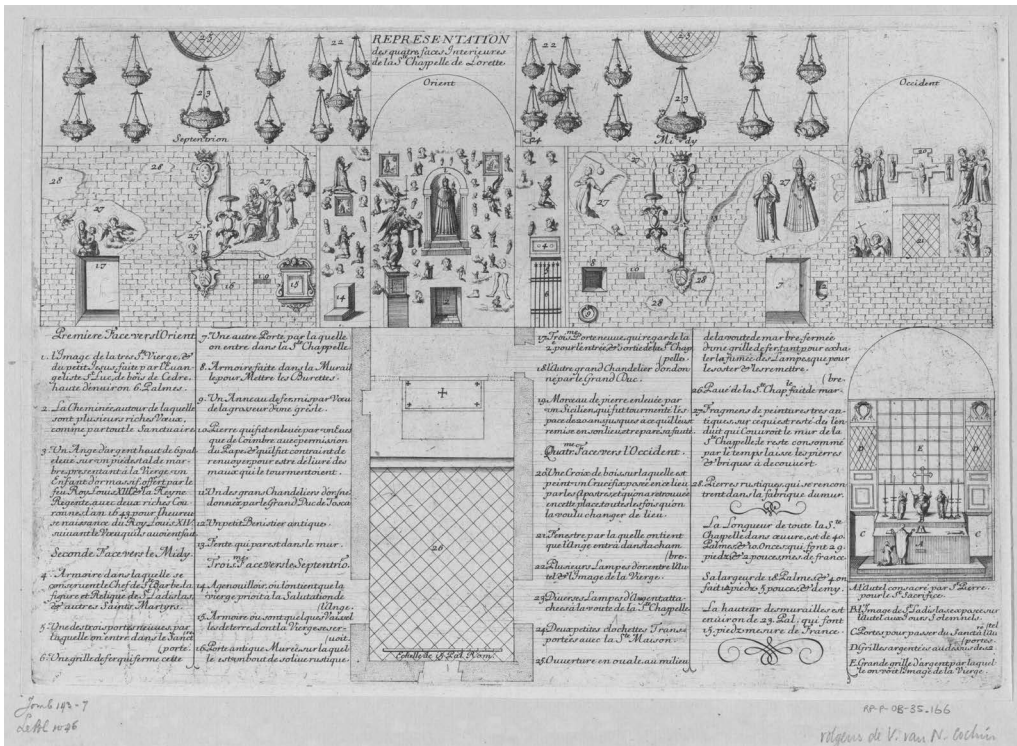 REPRESENTATION
des quatre faces Interieures
de la Ste Chappelle de Lorette
Orient
Occident
Septentrion
Midy
Premiere Face vers l'Orient
1. l'Image de la tres Ste Vierge, &
du petit Jesus, faite par l'Euan-
geliste St Luc, de bois de Cedre,
haute d'enuiron 6 Palmes.
2. La Cheminée autour de laquelle
sont plusieurs riches Vœux,
comme par tout le Sanctuaire
3. Un Ange d'argent haut de 6 pal
eleué sur un pied stal de mar-
bre, presentant à la Vierge, un
Enfant d'or massif, offert par le
feu Roy Louis XIII. & la Reyne
Regente, avec deux riches Cou-
ronnes, l'an 1643. pour l'heureu
se naissance du Roy Louis XIV.
suivant le Vœu qu'ils auoient fait
Seconde Face vers le Midy
4. Armoire dans laquelle se
conseruent le Chef de Ste Barbe, la
figure et Relique de St Ladislas,
& autres Saints Martyrs.
5. Une des trois portes neuues par
laquelle on entre dans le Sanct
(porte.
6. Une grille de fer qui ferme cette
7. Une autre Porte par laquelle
on entre dans la Ste Chappelle
8. Armoire faite dans la Murail
le, pour Mettre les Burettes.
9. Un Anneau de fer mis par Vœu
de la grosseur d'une gresle.
10. Pierre qui fut enleuée par un Eues
que de Coimbre auec permission
du Pape, & qu'il fut contraint de
renuoyer pour estre deliuré des
maux qui le tourmentoient.
11. Un des grans Chandeliers d'or
donnez par le Grand Duc de Tosca
12. Un petit Benistier antique.
13. Fente qui parest dans le mur.
Troisme Face vers le Septentrio.
14. Agenouilloir, où l'on tient que la
vierge prioit à la Salutation de
(l'Ange.
15. Armoire où sont quelques Vaissel
les de terre, dont la Vierge se ser-
(uoit.
16. Porte antique Murée sur la quel
le est un bout de soliue rustique
Echelle de 15 Pal. Rom.
17. Troisme Porte neuue, qui regarde la
2 pour l'entrée, & Sortie de la Ste Chap
(pelle.
18. l'Autre grand Chandelier d'or don-
né par le Grand Duc.
19. Morceau de pierre enleuée par
un Sicilien, qui fut tourmenté l'es-
pace de 20 ans jusques a ce qu'il l'eust
remise en son lieu, et reparé sa faute.
Quatrme Face vers l'Occident.
20. Une Croix de bois sur laquelle est
peint un Crucifix, posée en ce lieu
par les Apostres, et qu'on a retrouuée
en cette place toutes les fois qu'on
la voulu changer de lieu.
21. Fenestre par la quelle on tient
que l'Ange entra dans la cham
(bre.
22. Plusieurs Lampes d'or entre l'Au
tel & l'Image de la Vierge.
23. Diuerses Lampes d'Argent atta
chées à la voute de la Ste Chappelle
24. Deux petites clochettes Trans-
portées auec la Ste Maison.
25. Ouuerture en ouale au milieu
de la voute de marbre, fermée
d'une grille de fer, tant pour exha-
ler la fumée des Lampes, que pour
les oster & les remettre.
(bre.
26. Paué de la Ste Chaplle fait de mar.
27. Fragmens de peintures tres an
tiques, sur ce qui est resté de l'en
duit qui Couuroit le mur de la
Ste Chappelle, de reste consommé
par le temps, laisse les pierres
& briques à decouuert.
28. Pierres rustiques, qui se rencon
trent dans la fabrique du mur.
La Longueur de toute la Ste
Chapelle dans œuure, est de 40
Palmes & 10 Onces qui font 29
piedz & 2 pouces mes. de france.
Sa largeur de 18 Palmes & 4 on
fait 13 piedz 5 pouces & demy.
La hauteur des murailles est
enuiron de 25 Pal. qui font
15. piedz mesure de France
A. l'Autel consacré par St Pierre
pour le St Sacrifice.
B. l'Image de St Ladislas exposee sur
l'Autel aux Jours Solennels.
C. Portes pour passer du Sanct à l'Au
(tel
D. Grilles argentées au dessus des 2
(portes.
E. Grande grille d'argent par la quel
le on voit l'Image de la Vierge.
Jomb 143-7
RP-P-OB-35.166
volgens de V. van N. Cochin